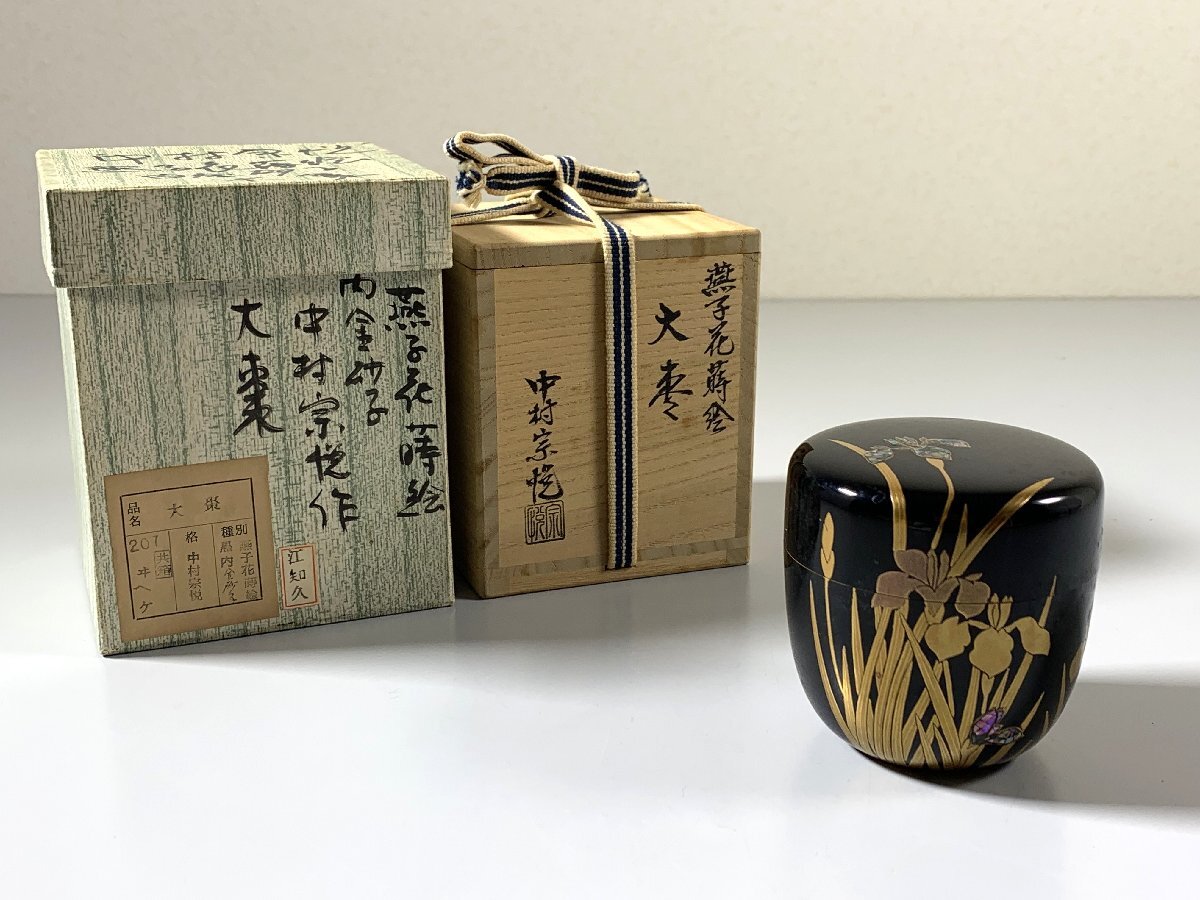 燕子花蒔絵
内金砂子
中村宗悦作
大棗
品名
大棗
207
共箱
ヰヘケ
格
中村宗悦
種別
燕子花蒔絵
黒内金砂子
江知久
燕子花蒔絵
大棗
中村宗悦
宗悦